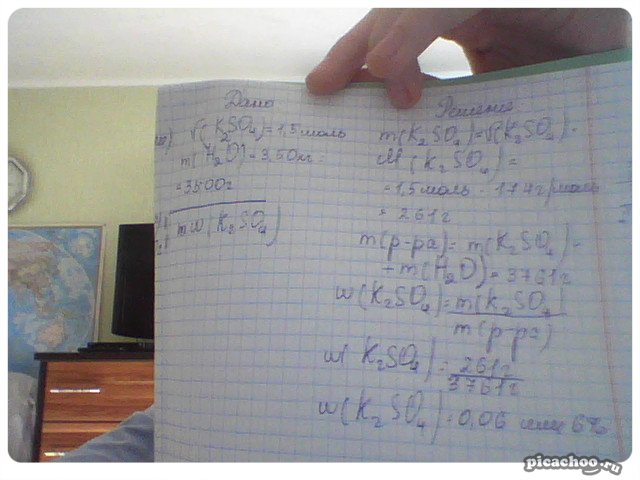 Дано
ν(K₂SO₄)=1,5 моль
m(H₂O)=3,50кг=
=3500г
mω(K₂SO₄)
Решение
m(K₂SO₄)=ν(K₂SO₄)·
M(K₂SO₄)=
=1,5моль·174г/моль
=261г
m(р-ра)=m(K₂SO₄)-
-m(H₂O)=3761г
w(K₂SO₄)=m(K₂SO₄)
m(р-ра)
w(K₂SO₄)=261г
3761г
w(K₂SO₄)=0,06 или 6%
picachoo.ru